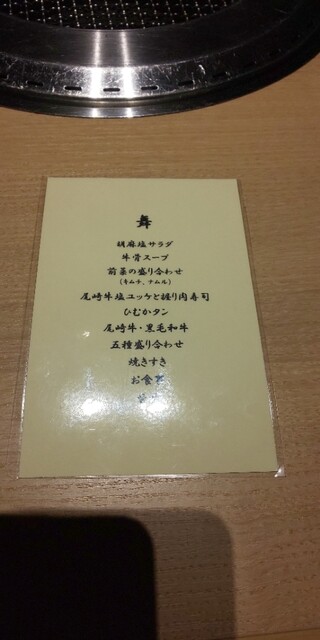 舞
胡麻塩サラダ
牛骨スープ
前菜の盛り合わせ
(キムチ、ナムル)
尾崎牛塩ユッケと握り肉寿司
ひむかタン
尾崎牛・黒毛和牛
五種盛り合わせ
焼きすき
お食事